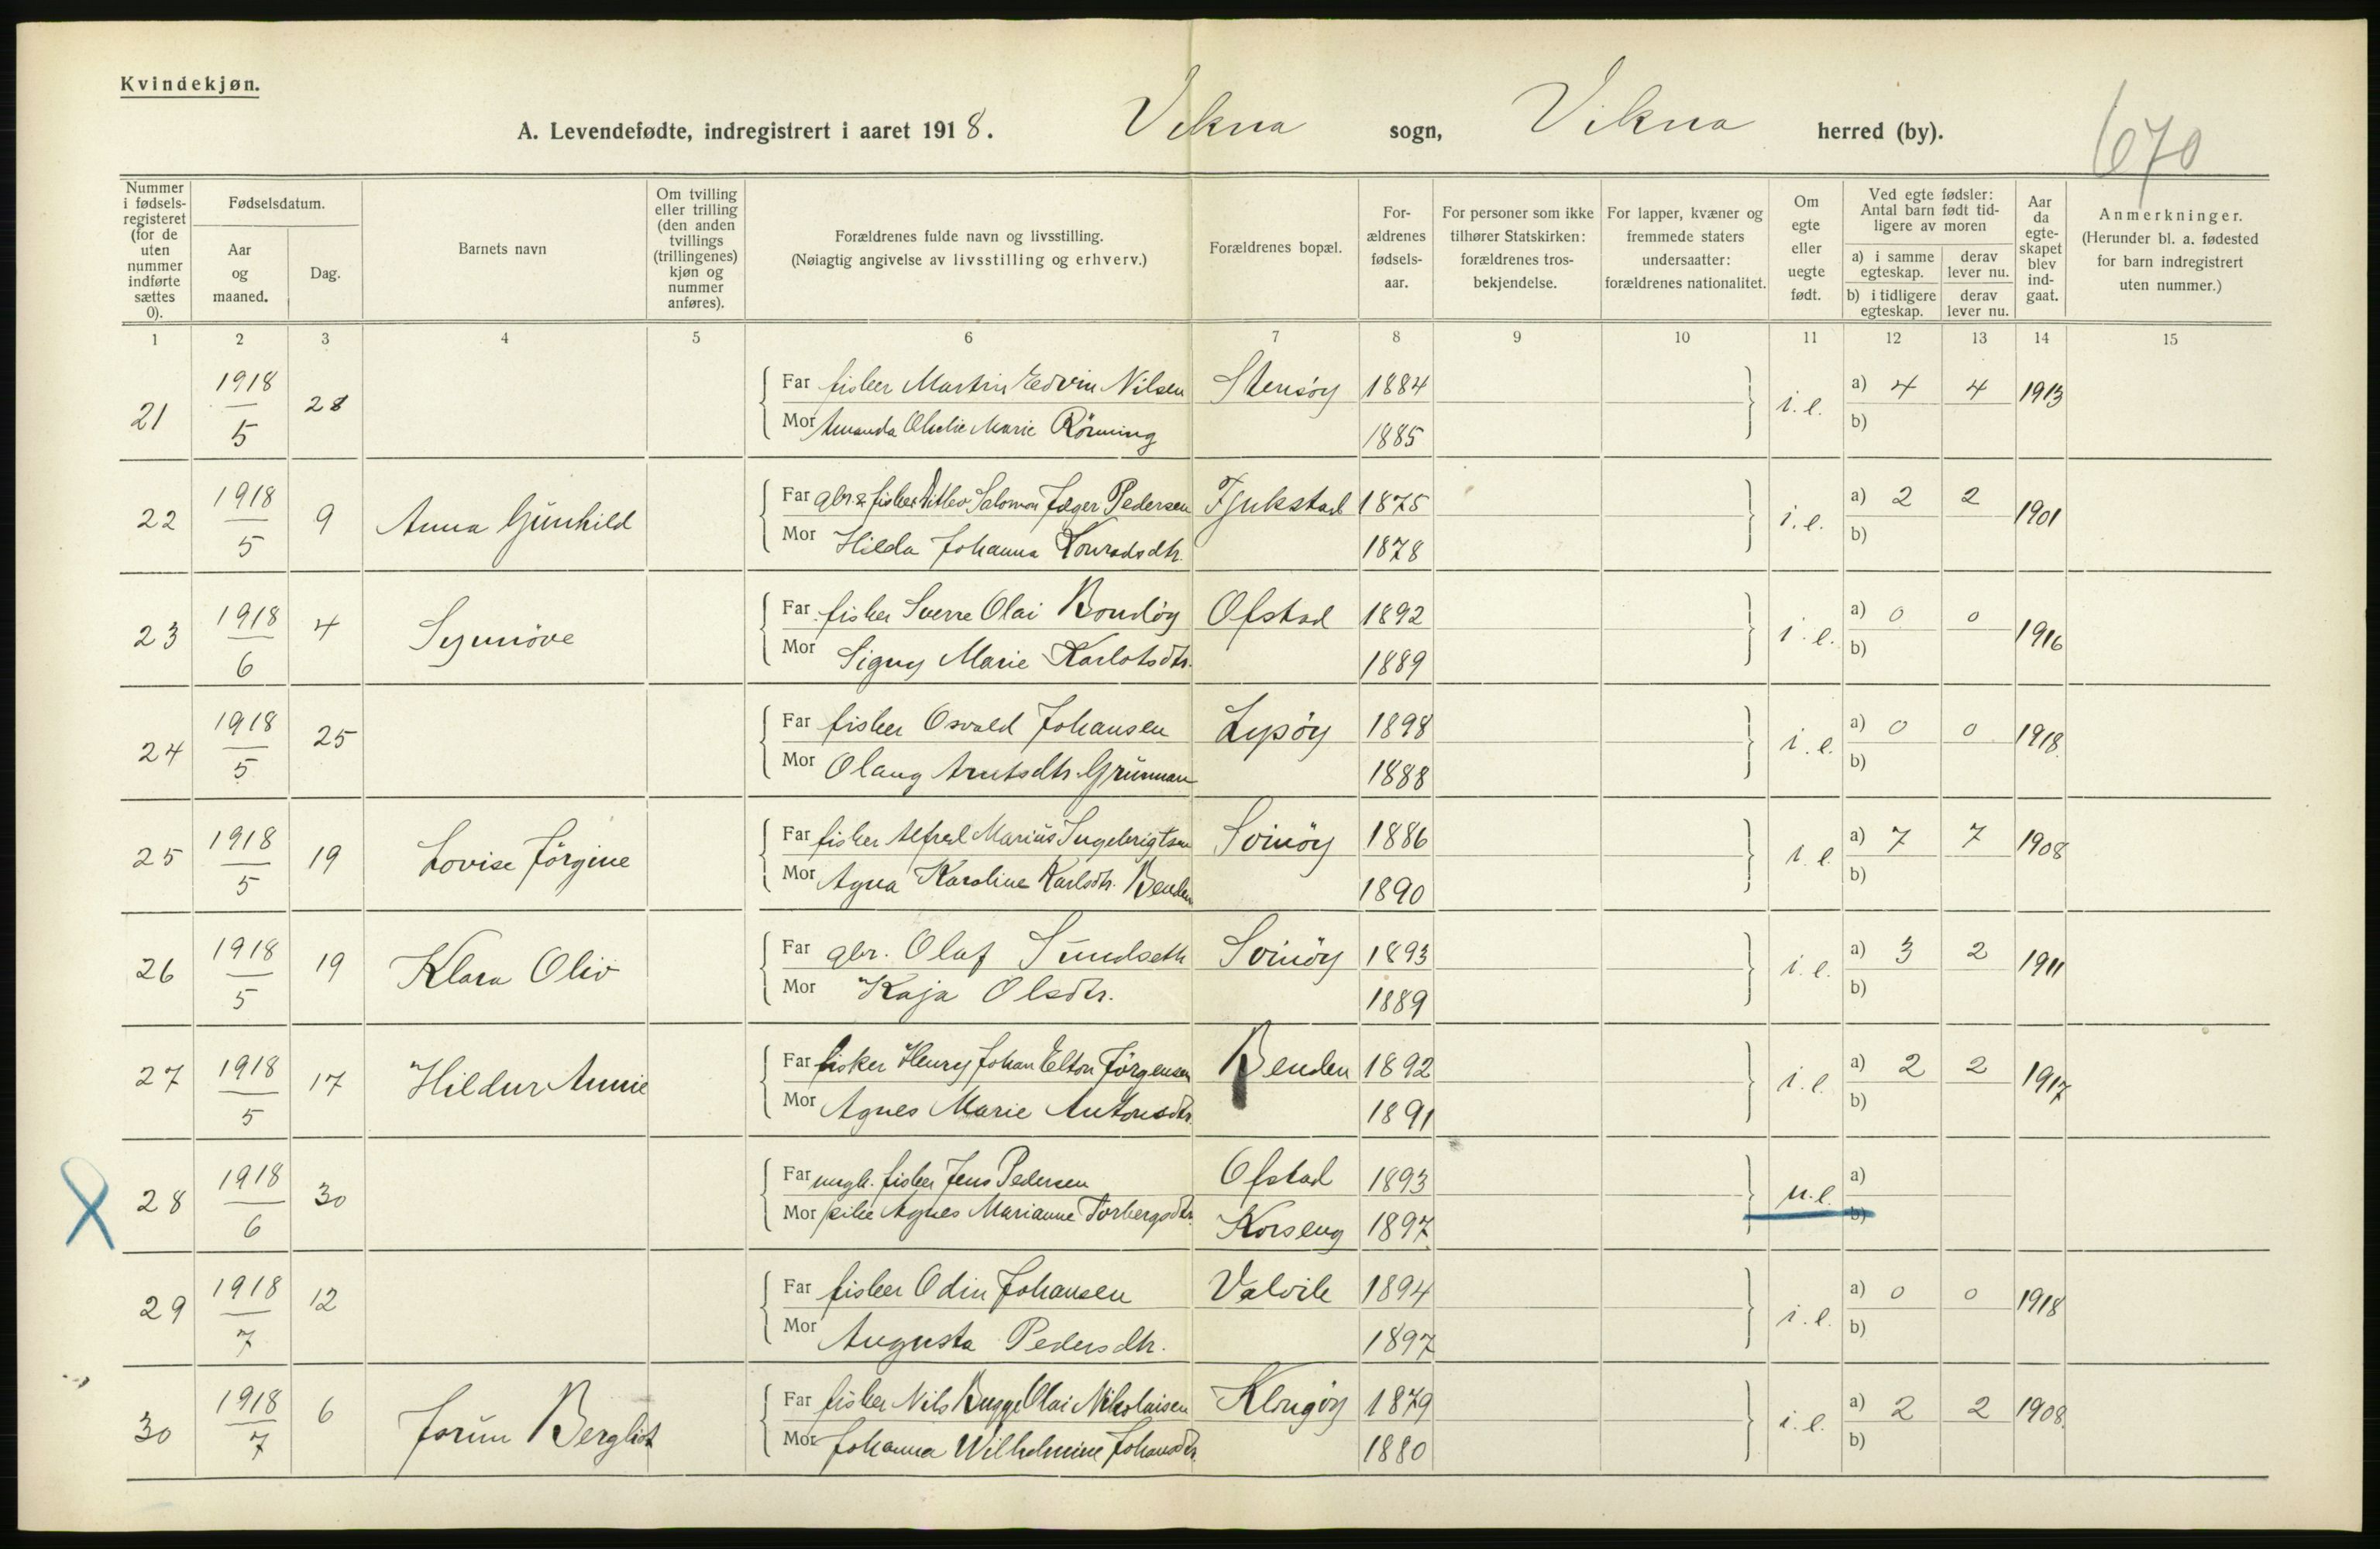 Kvindekjøn.
A. Levendefødte, indregistrert i aaret 1918. Vikna sogn, Vikna herred (by). 670
Nummer i fødselsregisteret (for de uten nummer indførte sættes 0). | Fødselsdatum. Aar og maaned. | Dag. | Barnets navn | Om tvilling eller trilling (den anden tvillings (trillingenes) kjøn og nummer anføres). | Forældrenes fulde navn og livsstilling. (Nøiagtig angivelse av livsstilling og erhverv.) | Forældrenes bopæl. | Forældrenes fødselsaar. | For personer som ikke tilhører Statskirken: forældrenes trosbekjendelse. | For lapper, kvæner og fremmede staters undersaatter: forældrenes nationalitet. | Om egte eller uegte født. | Ved egte fødsler: Antal barn født tidligere av moren a) i samme egteskap. b) i tidligere egteskap. | derav lever nu. derav lever nu. | Aar da egteskapet blev indgaat. | Anmerkninger. (Herunder bl. a. fødested for barn indregistrert uten nummer.)
1 2 3 4 5 6 7 8 9 10 11 12 13 14 15
21 1918/5 28 Far fisker Martin Edvin Nilsen Stensöy 1884 i.e. a) 4 4 1913
Mor Amanda Marie Rörming 1885 b)
22 1918/5 9 Anna Gunhild Far gbr & fisker Ditlev Salomon Jæger Pedersen Fjukstad 1875 i.e. a) 2 2 1901
Mor Hilda Johanna Konradsdtr. 1878 b)
23 1918/6 4 Synnöve Far fisker Sverre Olai Bondöy Ofstad 1892 i.e. a) 0 0 1916
Mor Signy Marie Karlotsdtr. 1889 b)
24 1918/5 25 Far fisker Osvald Johansen Lysöy 1898 i.e. a) 0 0 1918
Mor Olaug Arntsdtr. 1888 b)
25 1918/5 19 Lovise Jörgine Far fisker Alfred Marius Ingebrigtsen Svinöy 1886 i.e. a) 7 7 1908
Mor Agna Karoline Karlsdtr. Benden 1890 b)
26 1918/5 19 Klara Oliv Far gbr. Olaf Sundseth Svinöy 1893 i.e. a) 3 2 1911
Mor Kaja Olsdtr. 1889 b)
27 1918/5 17 Hildur Annie Far fisker Henry Johan Elton Jörgensen Benden 1892 i.e. a) 2 2 1917
Mor Agnes Marie Antonsdtr. 1891 b)
28 1918/6 30 Far ungk. fisker Jens Pedersen Ofstad 1893 u.e. a)
Mor pike Agnes Marianne Torbergsdtr. Korseng 1897 b)
29 1918/7 12 Far fisker Odin Johansen Valvik 1894 i.e. a) 0 0 1918
Mor Augusta Pedersdtr. 1897 b)
30 1918/7 6 Jorun Bergliot Far fisker Nils Bugge Olai Nikolaisen 1879 i.e. a) 2 2 1908
Mor Johanna Wilhelmine Johansdtr. 1880 b)